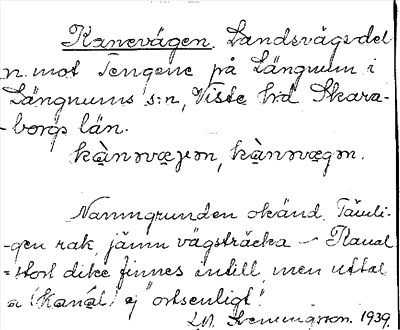 Kanevägen. Landsvägsdel
n. mot Tengene på Längnum i
Längnums s:n, Viste hd Skara-
-borgs län.
kànnvæjən, kànnvægən.
Namngrunden okänd. Tämli-
-gen rak, jämn vägsträcka – Kanal
=stort dike finnes intill, men uttal
a (kanál) ej "ortsenligt".
Hemmingsson. 1939.